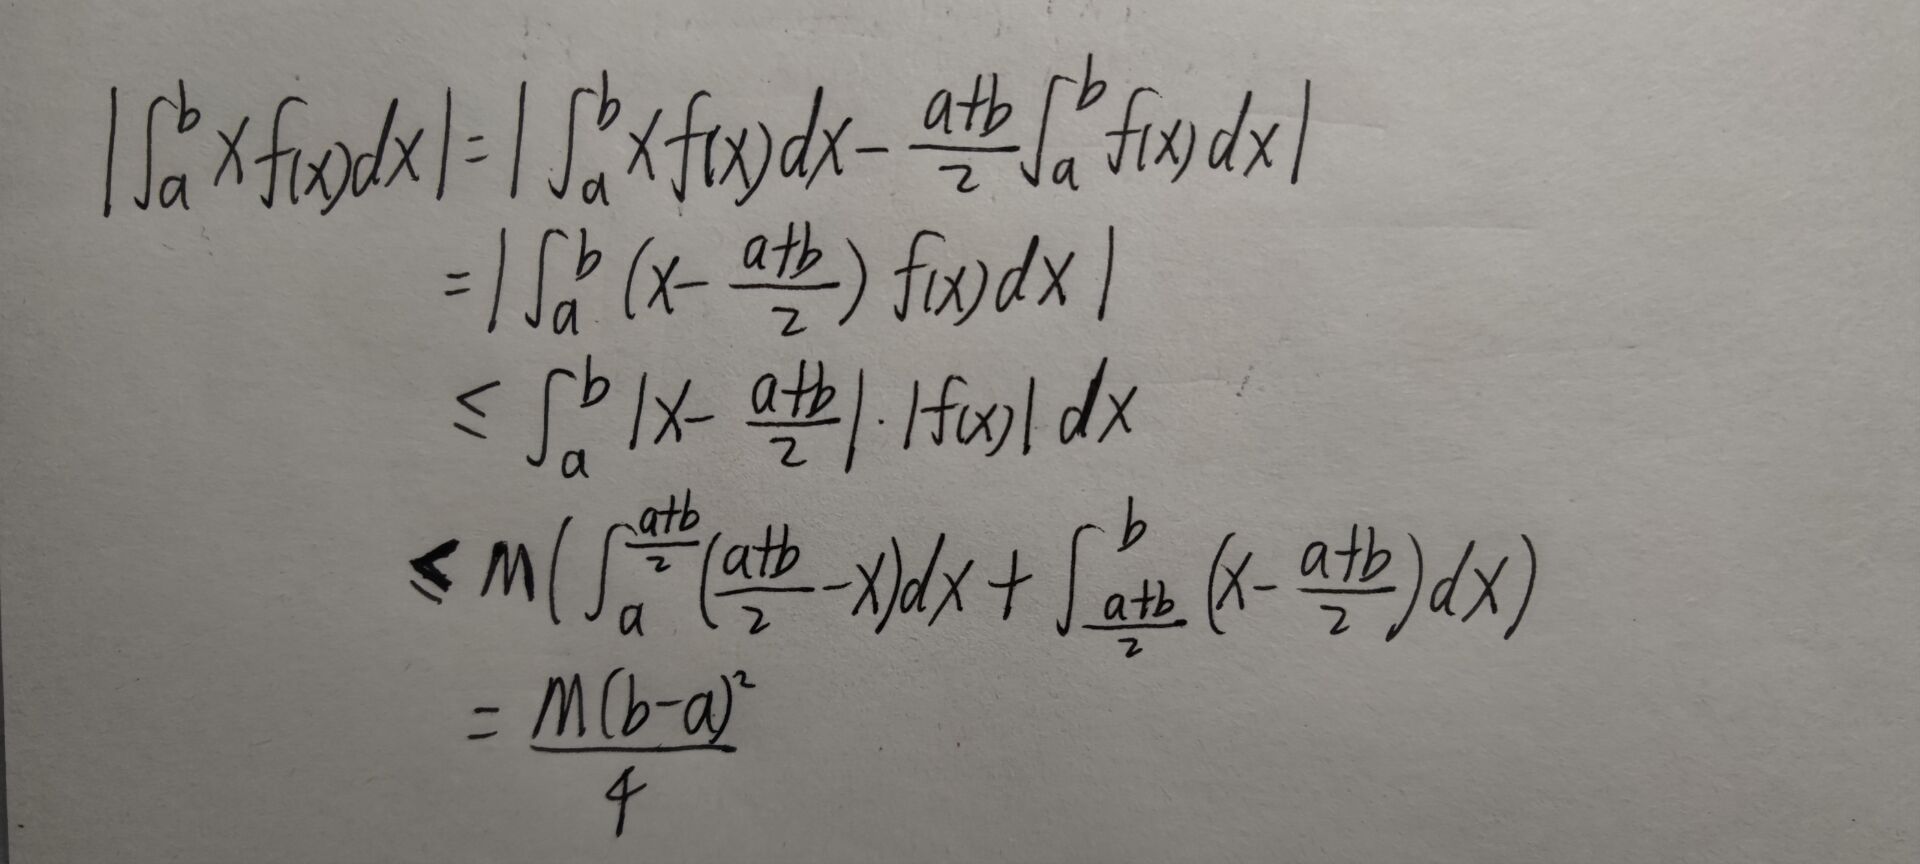 |∫_a^b x f(x) dx| = |∫_a^b x f(x) dx - \frac{a+b}{2} ∫_a^b f(x) dx|
= |∫_a^b (x - \frac{a+b}{2}) f(x) dx|
≤ ∫_a^b |x - \frac{a+b}{2}| · |f(x)| dx
≤ M (∫_a^{\frac{a+b}{2}} (\frac{a+b}{2} - x) dx + ∫_{\frac{a+b}{2}}^b (x - \frac{a+b}{2}) dx)
= \frac{M(b-a)^2}{4}